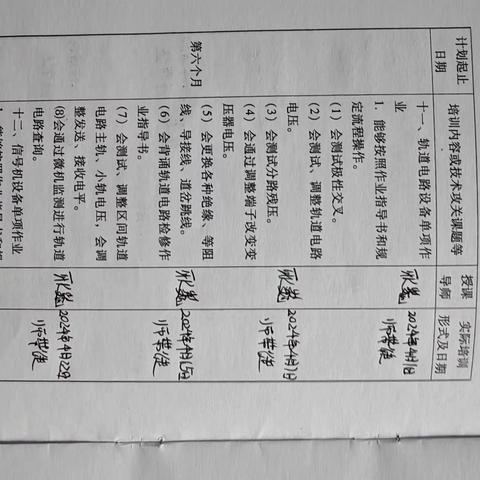 计划起止
日期
培训内容或技术攻关课题等
授课
导师
实际培训
形式及日期
第六个月
十一、轨道电路设备单项作
业
1. 能够按照作业指导书和规
定流程操作。
(1) 会测试极性交叉。
(2) 会测试、调整轨道电路
电压。
(3) 会测试分路残压。
(4) 会通过调整端子改变变
压器电压。
(5) 会更换各种绝缘、等阻
线、导接线、道岔跳线。
(6) 会背诵轨道电路检修作
业指导书。
(7) 会测试、调整区间轨道
电路主轨、小轨电压,会调
整发送、接收电平。
(8)会通过微机监测进行轨道
电路查询。
十二、信号机设备单项作业
2024年4月1日
师带徒
2024年4月7日
师带徒
2024年4月15日
师带徒
2024年4月22日
师带徒